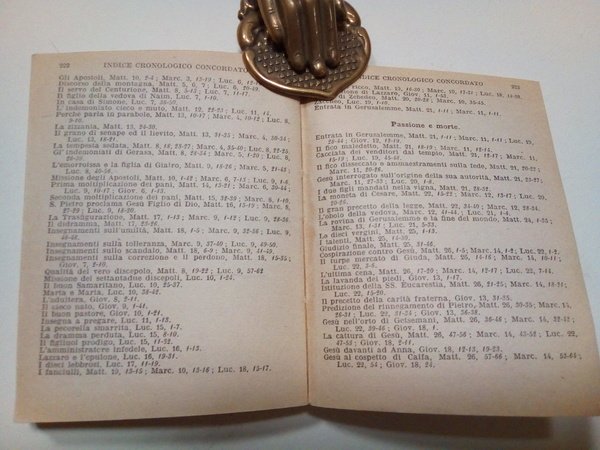 222 INDICE CRONOLOGICO CONCORDATO
Gli Apostoli, Matt. 10, 2-4; Marc. 3, 13-19; Luc. 6,
Discorso della montagna, Matt. 5, 6, 7; Luc. 6, 20-49.
Il servo del Centurione, Matt. 8, 5-15; Luc. 7,
Il figlio della vedova di Naim, Luc. 7,
In casa di Simone, Luc. 7, 36-50.
L'indemoniato cieco e muto, Matt. Luc. 11, 14.
Perchè parla in parabole, Matt. 13, 10-17; Marc. 4, 10-12; Luc. 8,
9-10.
La zizzania, Matt. 13, 24-30.
Il grano di senape ed il lievito, Matt. 13, 31-35; Marc. 4, 30-34;
Luc. 13, 18-21.
La tempesta sedata, Matt. 8, 18, 23-27; Marc. 4, 35-40; Luc. 8, 22-25.
Gl'indemoniati di Gerasa, Matt. 8, 28-34; Marc. 5, 1-20; Luc. 8,
26-39.
L'emorroissa e la figlia di Giairo, Matt. 9, 18-26; Marc. 5, 21-43;
Luc. 8, 40-56.
Missione degli Apostoli, Matt. 10, 1-42; Marc. 6, 7-13; Luc. 9, 1-6.
Prima moltiplicazione dei pani, Matt. 14, 13-21; Marc. 6, 30-44;
Luc. 9, 10-17; Giov. 6, 1-13.
Seconda moltiplicazione dei pani, Matt. 15, 32-39; Marc. 8, 1-10.
S. Pietro proclama Gesù Figlio di Dio, Matt. 16, 13-19; Marc. 8,
27-29; Luc. 9, 18-20.
La Trasfigurazione, Matt. 17, 1-13; Marc. 9, 1-12; Luc. 9, 28-36.
Il didramma, Matt. 17, 23-26.
Insegnamenti sull'umiltà, Matt. 18, 1-5; Marc. Luc. 9,
46-48.
Insegnamenti sulla tolleranza, Marc. 9, 37-40; Luc. 9, 49-50.
Insegnamenti sullo scandalo, Matt. 18, 6-9; Marc. 9, 41-49.
Insegnamenti sulla correzione e il perdono, Matt. 18, 15-35;
Giov. 7, 2-10.
Qualità del vero discepolo, Matt. 8, 19-22; Luc. 9, 57-62
Missione dei settantadue discepoli, Luc. 10, 1-24.
Il buon Samaritano, Luc. 10, 25-37.
Marta e Maria, Luc. 10, 38-42.
L'adultera, Giov. 8, 2-11.
Il cieco nato, Giov. 9, 1-41.
Il buon pastore, Giov. 10, 1-21.
Insegna a pregare, Luc. 11, 1-13.
La pecorella smarrita, Luc. 15, 1-7.
La dramma perduta, Luc. 15, 8-10.
Il figliuol prodigo, Luc. 15, 11-32.
L'amministratore infedele, Luc. 16, 1-13.
Lazzaro e l'epulone, Luc. 16, 19-31.
I dieci lebbrosi, Luc. 17, 11-19.
I fanciulli, Matt. 19, 13-15; Marc. 10, 13-16; Luc. 18, 15-17.
INDICE CRONOLOGICO CONCORDATO 223
ricco, Matt. Marc. 10, Luc. 18,
di Lazzaro, Giov. 11,
di Zebedeo, Matt. 20, 20-28; Marc. 10, 35-45.
Luc. 19, 1-10.
Entrata in Gerusalemme, Matt. 21, 1-11; Marc. 11,
Passione e morte.
Entrata in Gerusalemme, Matt. 21, 1-11; Marc. 11,
Luc. 19,
Il fico maledetto, Matt. 21, 18-19; Marc. 11, 12-14.
Cacciata dei venditori dal tempio, Matt. 21, 12-17; Marc. 11,
15-19; Luc. 19, 45-48.
Il fico disseccato e ammaestramenti sulla fede, Matt. 21,
Marc. 11, 20-26.
Gesù interrogato sull'origine della sua autorità, Matt. 21, 23-27;
Marc. 11, 27-33; Luc. 20, 1-8.
I due figli mandati nella vigna, Matt. 21, 28-32.
La moneta di Cesare, Matt. 22, 15-22; Marc. 12, 13-17; Luc. 20,
Il gran precetto della legge, Matt. 22, 34-40; Marc. 12, 28-34.
L'obolo della vedova, Marc. 12, 41-44; Luc. 21, 1-4.
La rovina di Gerusalemme e la fine del mondo, Matt. 24, 1-51;
Marc. 13, 1-37; Luc. 21, 5-33.
Le dieci vergini, Matt. 25, 1-13.
I talenti, Matt. 25, 14-30.
Giudizio finale, Matt. 25, 31-46.
Cospirazione contro Gesù, Matt. 26, 1-5; Marc. 14, 1-2; Luc. 22, 1-2.
Il turpe mercato di Giuda, Matt. 26, 14-16; Marc. 14, 10-11;
Luc. 22, 3-6.
L'ultima cena, Matt. 26, 17-20; Marc. 14, 12-17; Luc. 22, 7-14.
La lavanda dei piedi, Giov. 13, 1-17.
Istituzione della SS. Eucarestia, Matt. 26, 21-25; Marc. 14, 18-21;
Luc. 22, 15-20.
Il precetto della carità fraterna, Giov. 13, 31-35.
Predizione del rinnegamento di Pietro, Matt. 26, 30-35; Marc. 14,
26-31; Luc. 22, 31-34; Giov. 13, 36-38.
Gesù nell'orto di Getsemani, Matt. 26, 36-46; Marc. 14, 32-42;
Luc. 22, 39-46; Giov. 18, 1.
La cattura di Gesù, Matt. 26, 47-56; Marc. 14, 43-52; Luc. 22,
47-53; Giov. 18, 2-11.
Gesù davanti ad Anna, Giov. 18, 12-13, 19-23.
Gesù al cospetto di Caifa, Matt. 26, 57-66; Marc. 14, 53-64;
Luc. 22, 54; Giov. 18, 24.